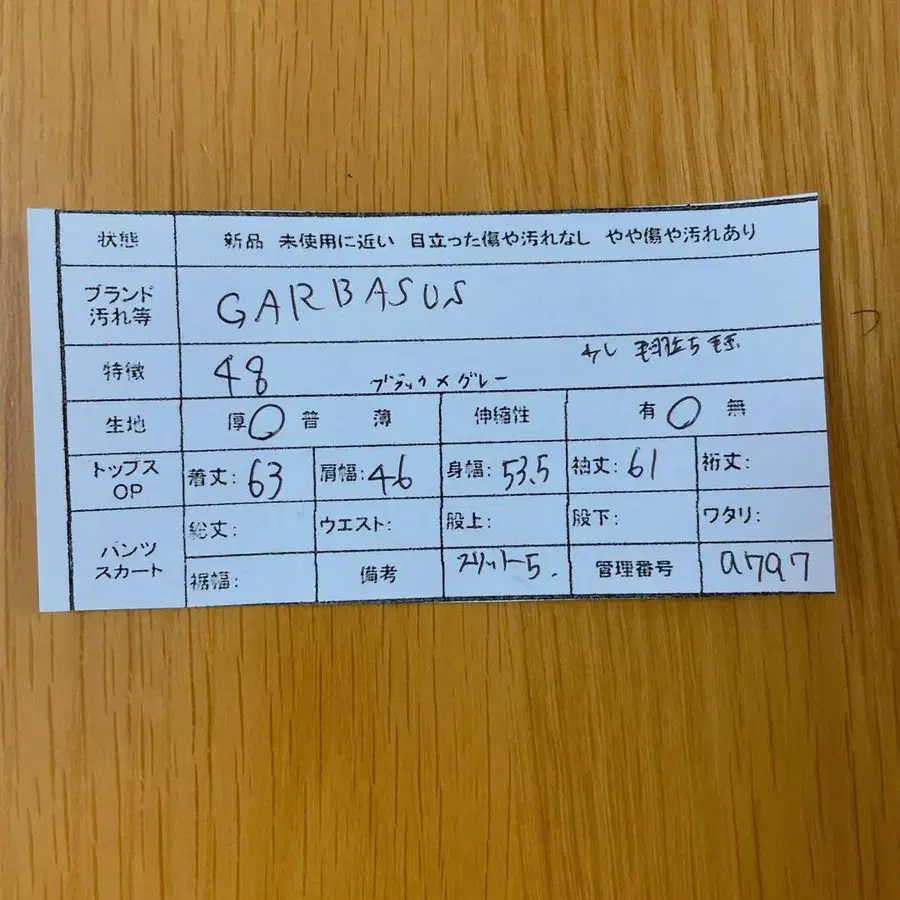 状態 新品 未使用に近い 目立った傷や汚れなし やや傷や汚れあり
ブランド GARBASUS
汚れ等
特徴 48 ブラック×グレー 少し 毛羽立ち
生地 厚 ○ 普 薄 伸縮性 有 ○ 無
トップス 着丈: 63 肩幅: 46 身幅: 53.5 袖丈: 61 裄丈:
OP
パンツ 総丈: ウエスト: 股上: 股下: ワタリ:
スカート 裾幅: 備考 スリット5. 管理番号 a797